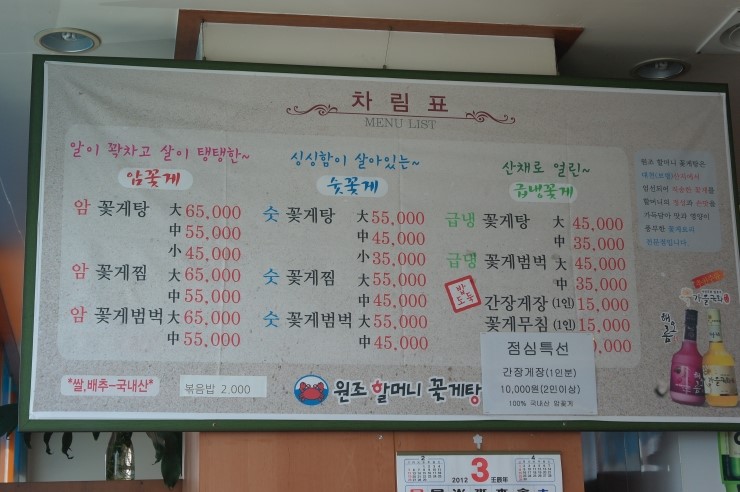 차림표
MENU LIST
알이 꽉차고 살이 탱탱한~
암꽃게
암 꽃게탕 大 65,000
中 55,000
小 45,000
암 꽃게찜 大 65,000
中 55,000
암 꽃게범벅 大 65,000
中 55,000
싱싱함이 살아있는~
숫꽃게
숫 꽃게탕 大 55,000
中 45,000
小 35,000
숫 꽃게찜 大 55,000
中 45,000
숫 꽃게범벅 大 55,000
中 45,000
산채로 얼린~
급냉꽃게
급냉 꽃게탕 大 45,000
中 35,000
급냉 꽃게범벅 大 45,000
中 35,000
밥도둑
간장게장 (1인) 15,000
꽃게무침 (1인) 15,000
,000
점심특선
간장게장(1인분)
10,000원(2인이상)
100% 국내산 암꽃게
원조 할머니 꽃게탕은
전문점입니다
*쌀,배추-국내산*
볶음밥 2.000
원조 할머니 꽃게탕
2012
3
2
4